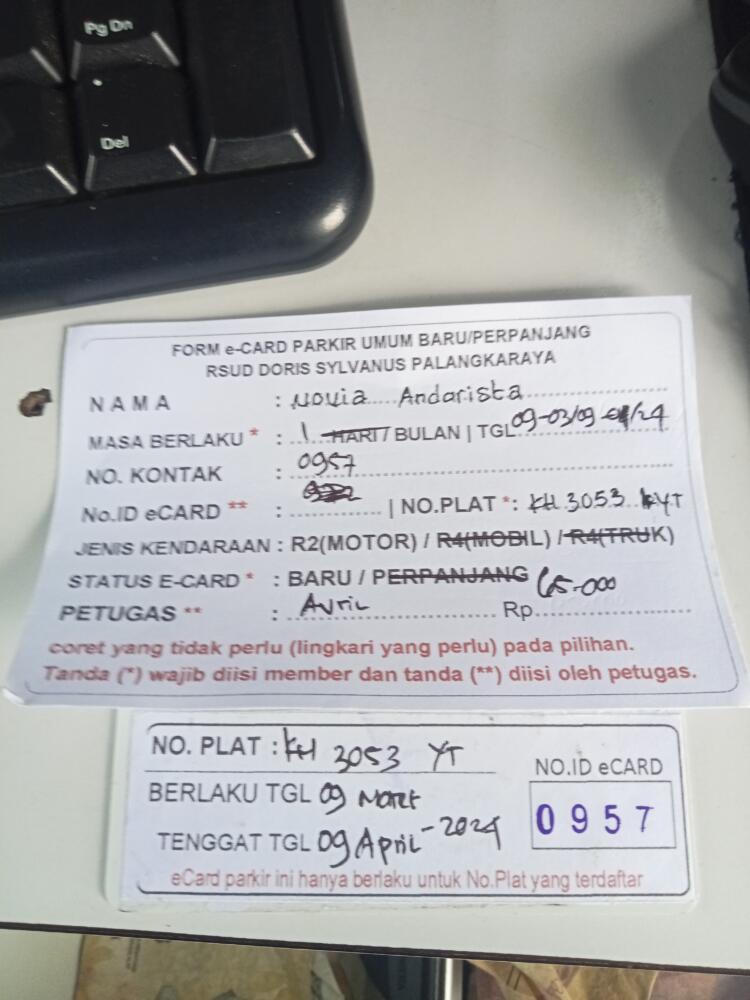 Pg Dn
Del
FORM e-CARD PARKIR UMUM BARU/PERPANJANG
RSUD DORIS SYLVANUS PALANGKARAYA
NAMA : Novia Andarista
MASA BERLAKU * : 1 HARI / BULAN | TGL 09-03/09 /24
NO. KONTAK : 0957
No.ID eCARD ** : | NO.PLAT *: KH 3053 YT
JENIS KENDARAAN : R2(MOTOR) / R4(MOBIL) / R4(TRUK)
STATUS E-CARD * : BARU / PERPANJANG
PETUGAS ** : Avril Rp 65.000
coret yang tidak perlu (lingkari yang perlu) pada pilihan.
Tanda (*) wajib diisi member dan tanda (**) diisi oleh petugas.
NO. PLAT : KH 3053 YT
BERLAKU TGL 09 Maret
TENGGAT TGL 09 April - 2024
NO.ID eCARD
0957
eCard parkir ini hanya berlaku untuk No.Plat yang terdaftar